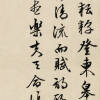 耘耔登東皋
清流而賦詩
盡樂夫天命